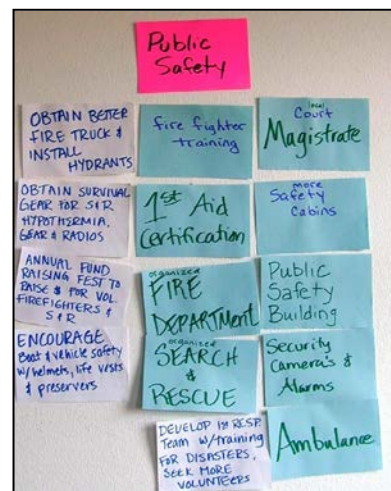 Public
Safety
OBTAIN BETTER
FIRE TRUCK &
INSTALL
HYDRANTS
OBTAIN SURVIVAL
GEAR FOR S&R
HYPOTHERMIA,
GEAR & RADIOS
ANNUAL FUND
RAISING FEST TO
RAISE $ FOR VOL.
FIREFIGHTERS &
S&R
ENCOURAGE
Boat & vehicle safety
w/helmets, life vests
& preservers
fire fighter
training
1st Aid
Certification
organized
FIRE
DEPARTMENT
organized
SEARCH &
RESCUE
DEVELOP 1st RESP.
Team w/training
FOR DISASTERS,
SEEK MORE
VOLUNTEERS
local
Court
Magistrate
more
Safety
Cabins
Public
Safety
Building
Security
Camera's &
Alarms
Ambulance